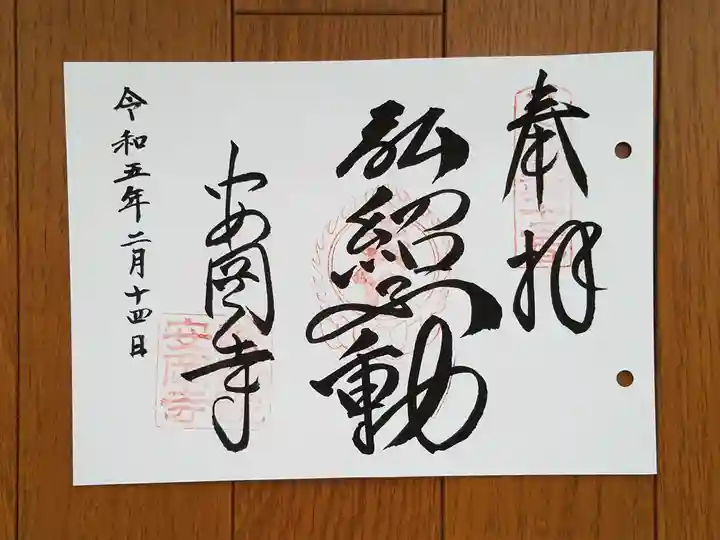 奉拝
弘紹不動
安岡寺
令和五年二月十四日
安岡寺